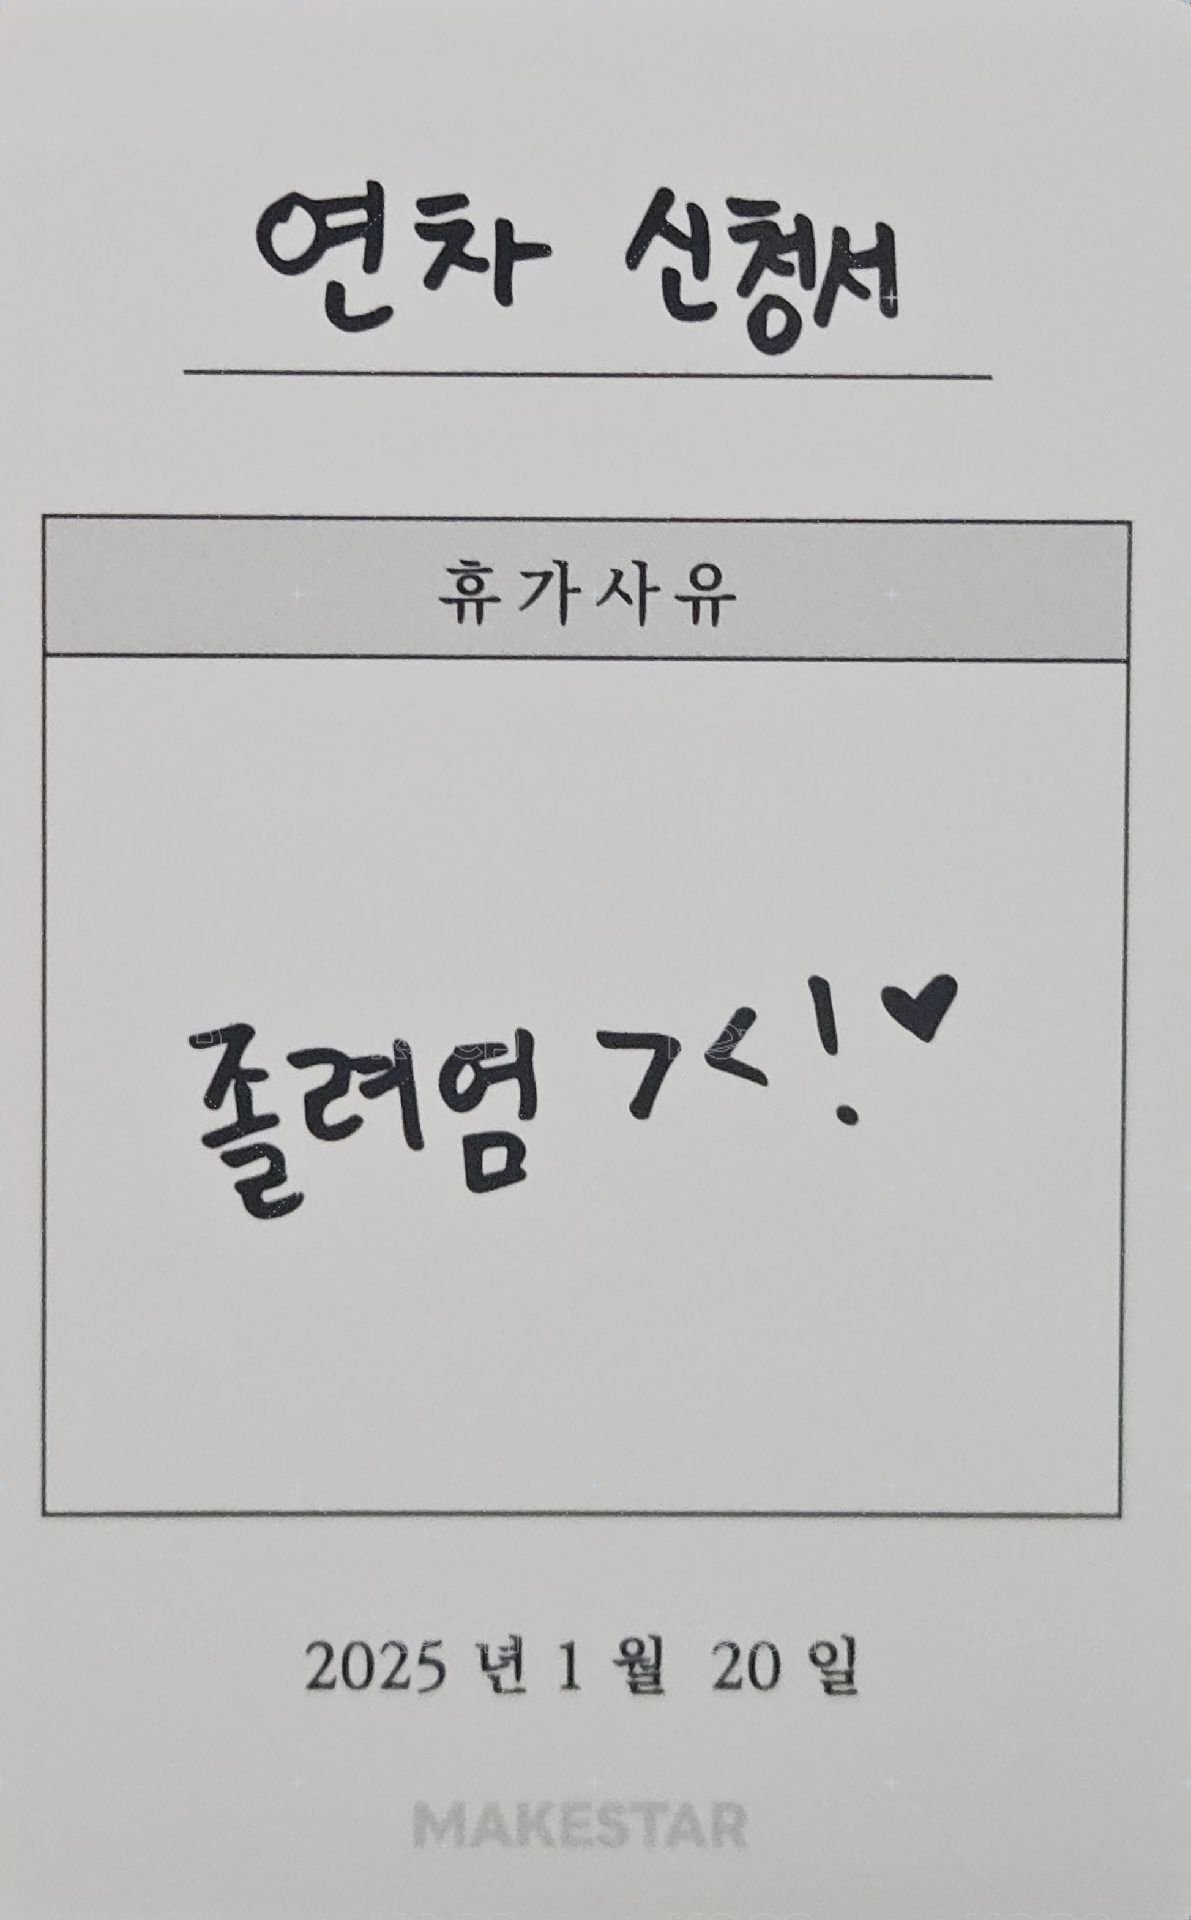 연차 신청서
휴가사유
졸려엄 ㄱㅅ!♥
2025 년 1 월 20 일
MAKESTAR